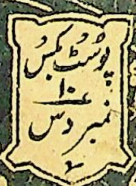 پوسٹ بکس
۱۰
نمبر دس